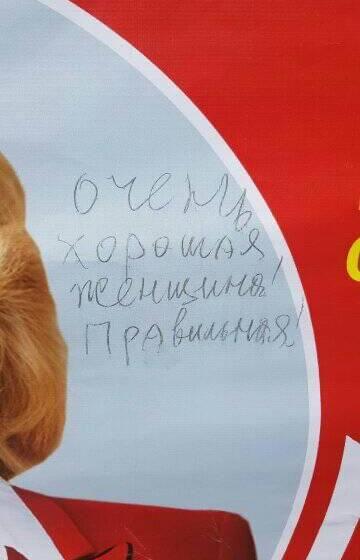 очень
хорошая
женщина!
Правильная!